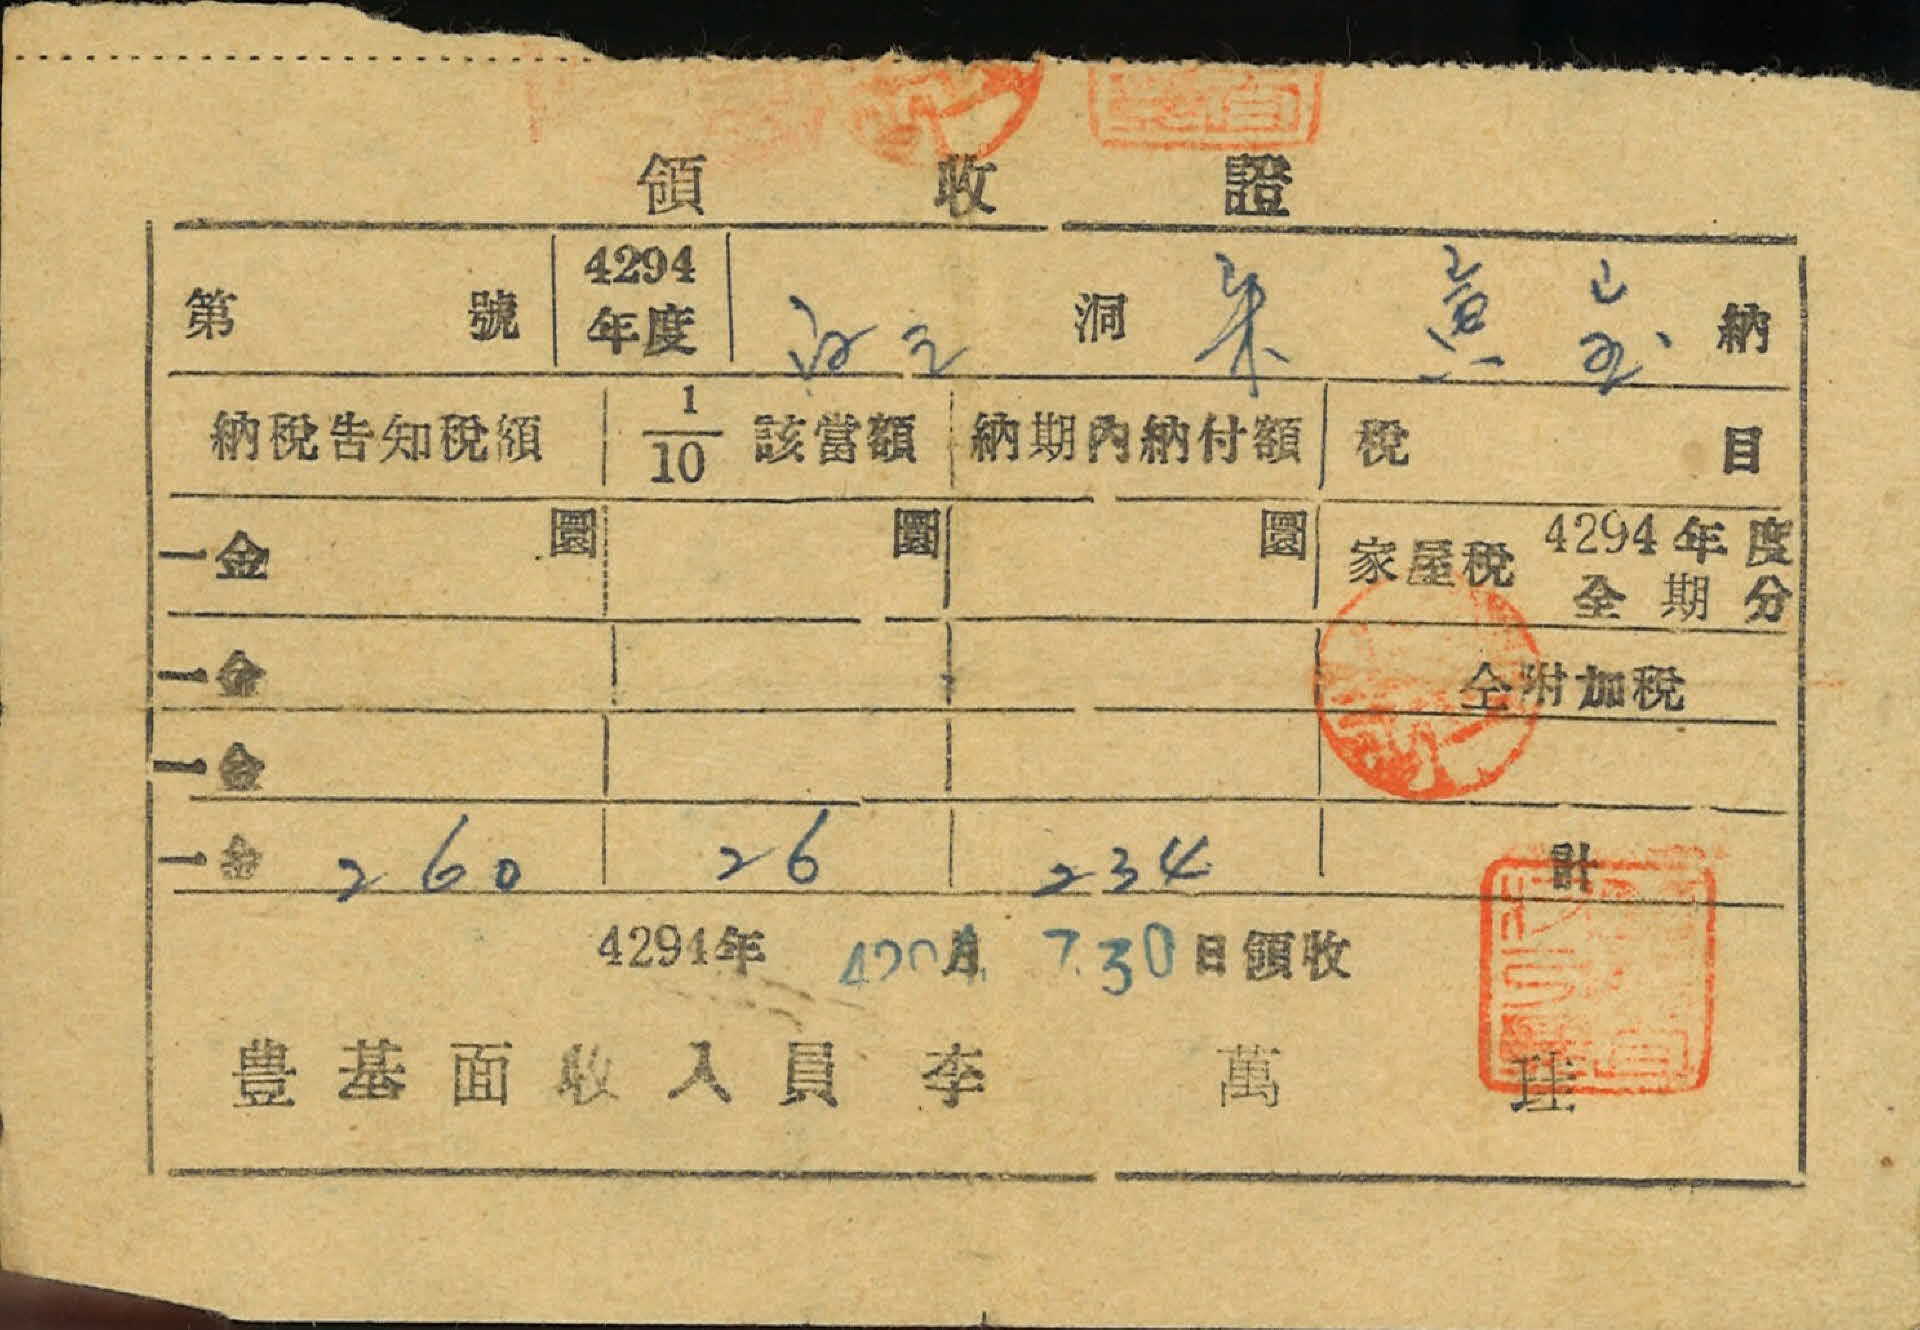 領收證
第 號 4294年度 洞 納
納稅告知稅額 1/10 該當額 納期內納付額 稅目
一金 圜 圜 圜 家屋稅 4294年度全期分
一金 仝附加稅
一金
一金 260 26 234 計
4294年 月 7.30日領收
豊基面收入員 李萬珪